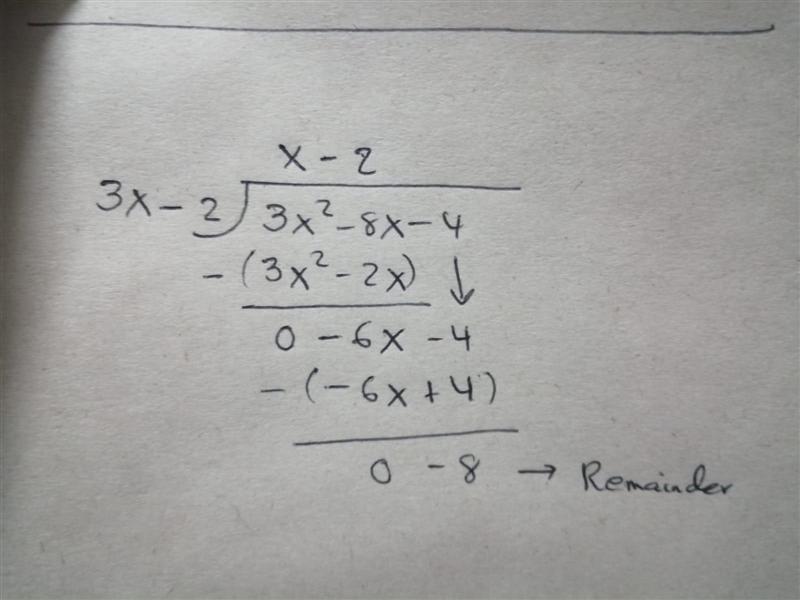 x - 2
3x - 2 ) 3x² - 8x - 4
- (3x² - 2x) ↓
0 - 6x - 4
- (-6x + 4)
0 - 8 → Remainder